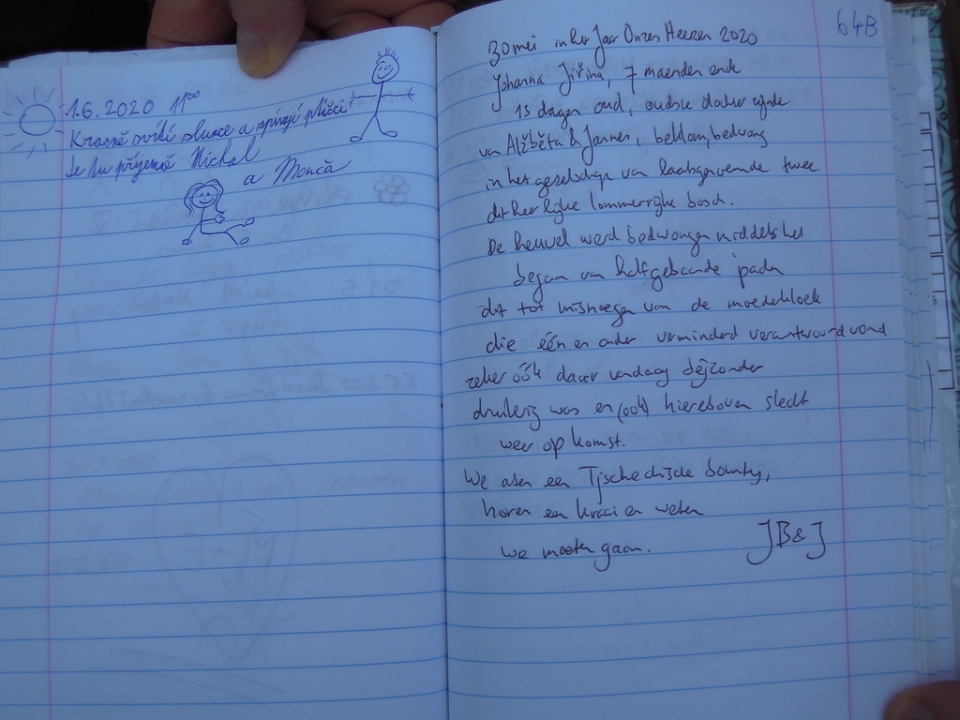 1.6.2020 11⁰⁰
Krásně svítí slunce a zpívají ptáčci
Je tu příjemně Michal
a Monča
64B
30 mei in het Jaar Onzes Heeren 2020
Johanna Jiřina, 7 maenden ende
15 dagen oud, oudste dochter zijnde
van Alžběta & Jannes, beklom, bedwong
in het geselschap van laatsgenoemde twee
dit heerlijke lommerrijke bosch.
De heuvel werd bedwongen middels het
begaan van halfgebaande paden
dit tot misnoegen van de moederkloek
die één en ander verminderd verantwoord vond
zeker óók daar vandaag bijzonder
druilerig was en (ook) hierboven slecht
weer op komst.
We aten een Tjschechische bounty,
horen een kraai en weten
we moeten gaan. JB&J